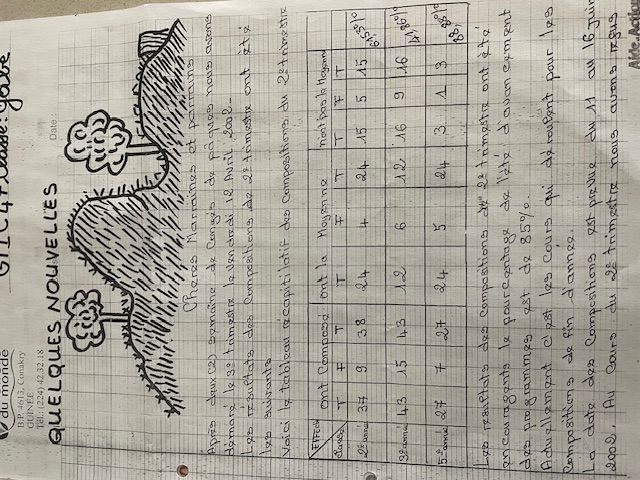 GTIC 47 classe: Gobé
du monde
B.P. 4613, Conakry
GUINÉE
Tél.: (224) 42.32.18
Date :
QUELQUES NOUVELLES
Chères Marraines et parrains
Après deux (2) semaine de Congés de pâques nous avons
démarré le 3e trimestre le Vendredi 12 Avril 2002.
Les résultats des Compositions de 2e trimestre ont été
les suivants
Voici le tableau récapitulatif des Compositions du 2e trimestre
EFFECTIF ont Composé ont la Moyenne n'ont pas la Moyenne
Classes T F T T F T T F T
2e année 37 9 38 24 4 24 15 5 15 61,5%
3e année 43 15 43 12 6 12 16 9 16 41,86%
5e année 27 7 27 24 5 24 3 1 3 88,88%
Les résultats des Compositions du 2e trimestre ont été
encourageants le pourcentage de l'été d'avancement
des programmes est de 85%.
Actuellement c'est les Cours qui déroulent pour les
Compositions de fin d'année.
La date des Compositions est prévue du 11 au 16 juin
2002. Au Cours du 2e trimestre nous avons reçus